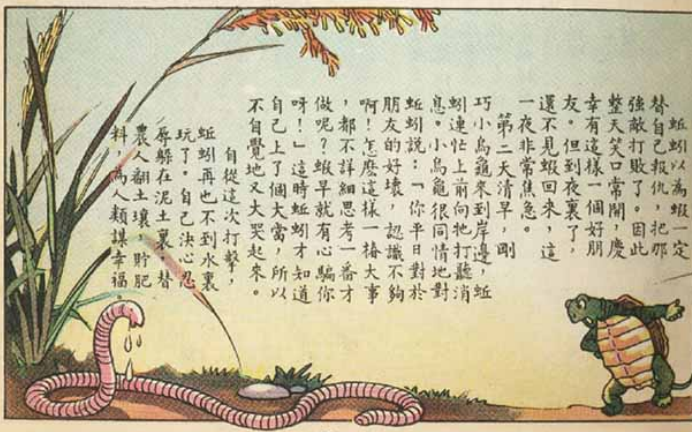 蚯蚓以為蝦一定
替自己報仇,把那
強敵打敗了。因此
整天笑口常開,慶
幸有這樣一個好朋
友。但到夜裏了,
還不見蝦回來,這
一夜非常焦急。
第二天清早,剛
巧小烏龜來到岸邊,蚯
蚓連忙上前向牠打聽消
息。小烏龜很同情地對
蚯蚓說:「你平日對於
朋友的好壞,認識不夠
啊!怎麼這樣一樁大事
,都不詳細思考一番才
做呢?蝦早就有心騙你
呀!」這時蚯蚓才知道
自己上了個大當,所以
不自覺地又大哭起來。
自從這次打擊,
蚯蚓再也不到水裏
玩了。自己決心忍
辱躲在泥土裏,替
農人翻土壤,貯肥
料,為人類謀幸福。